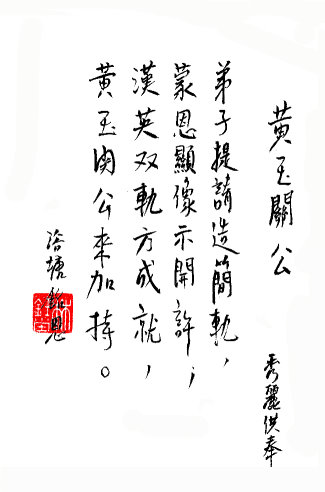 黃玉關公
弟子提請造簡軌，
蒙恩顯像示開許；
漢英双軌方成就，
黃玉関公來加持。
洛塘
秀麗供奉